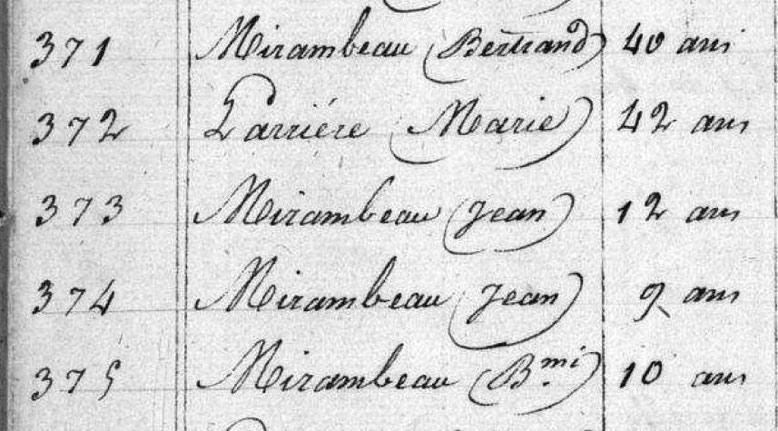 371 Mirambeau (Bertrand) 40 ans
372 Larriére (Marie) 42 ans
373 Mirambeau (Jean) 12 ans
374 Mirambeau (Jean) 9 ans
375 Mirambeau (B.mi) 10 ans